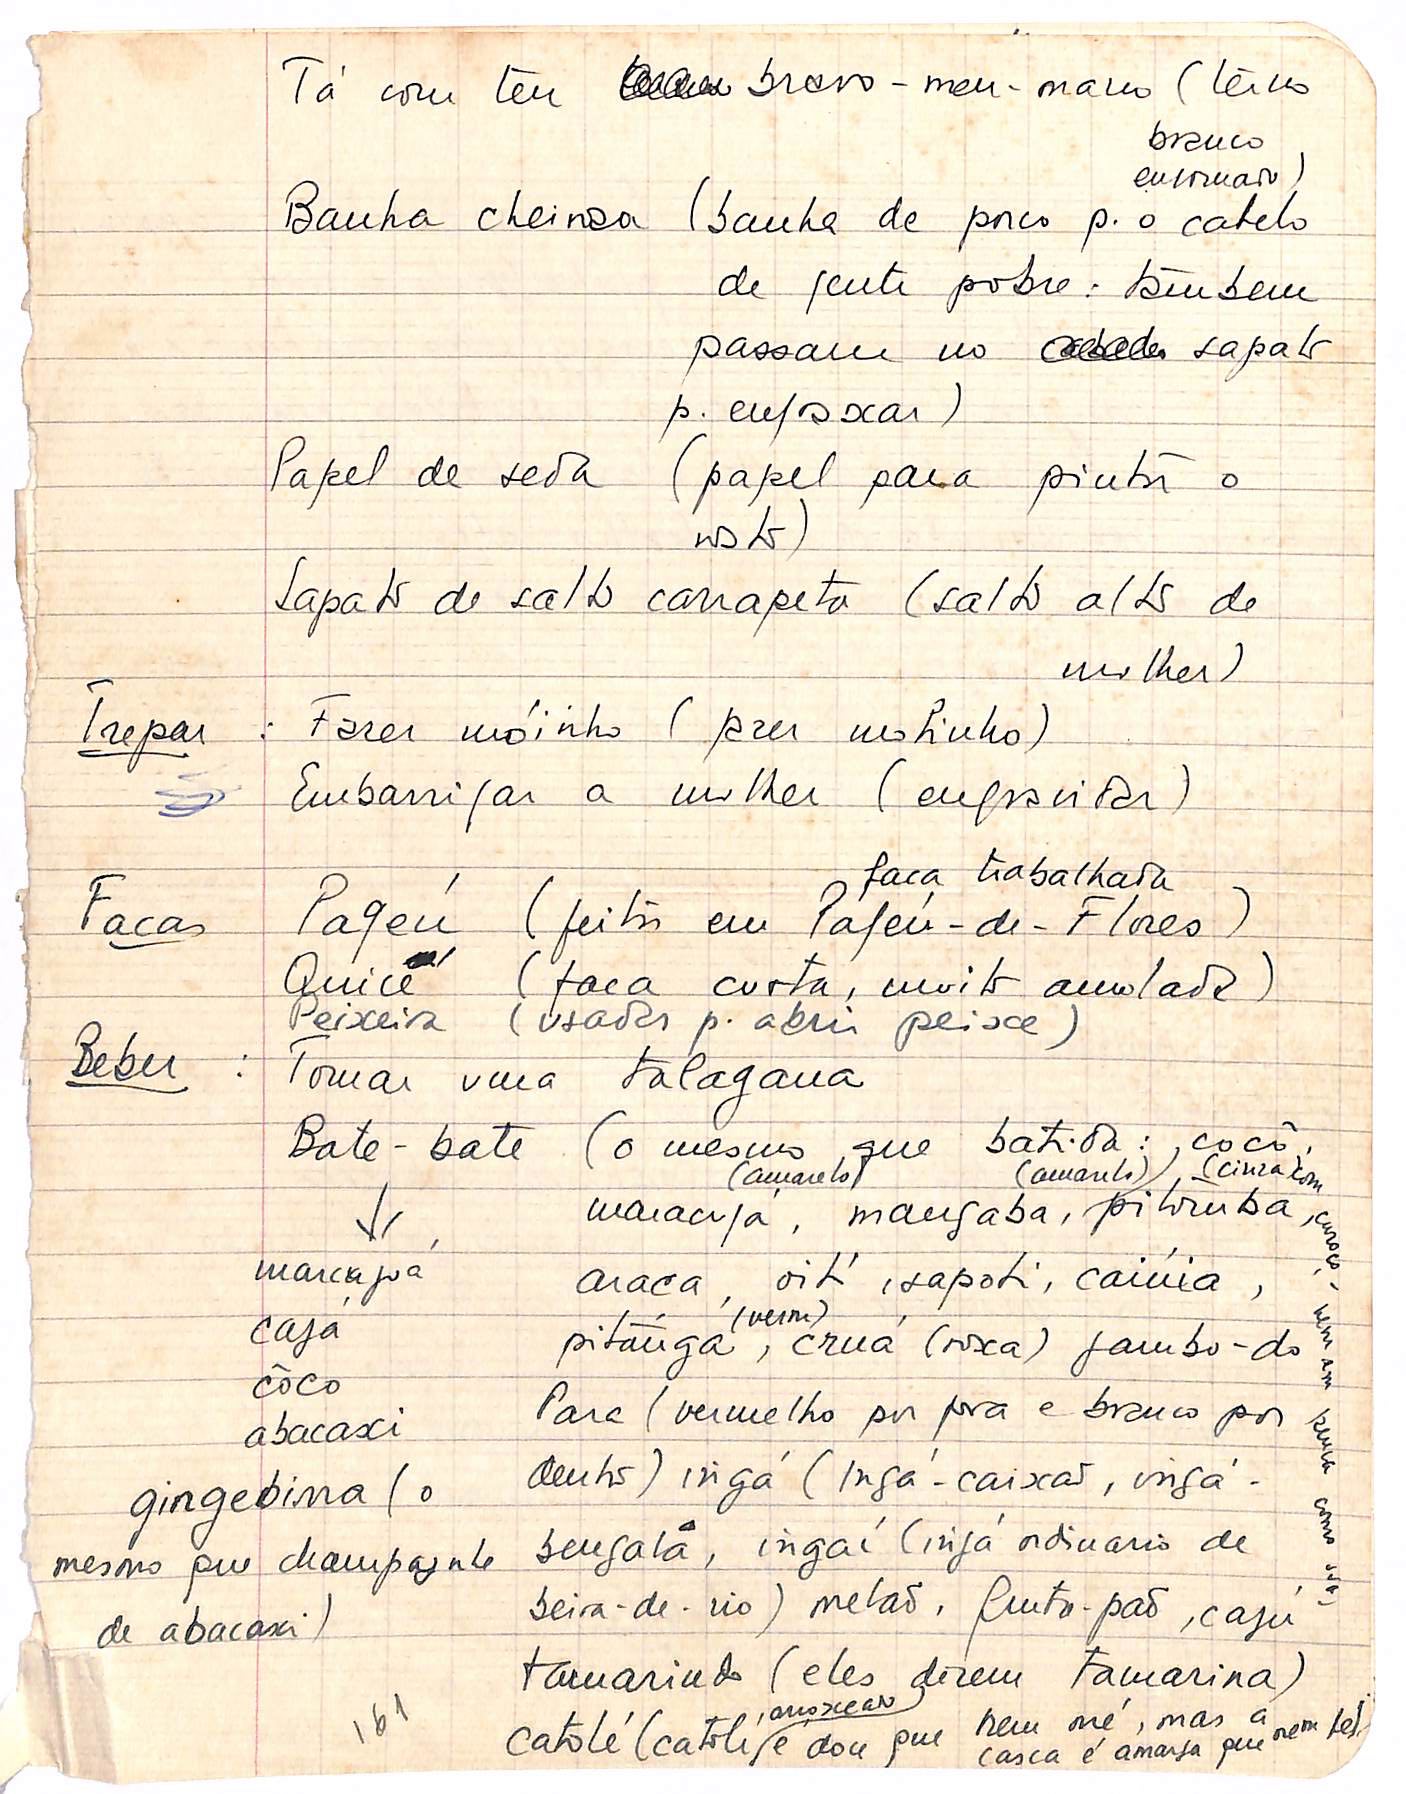 Tá com teu bravo-meu-mano (terno
branco
engomado)
Banha cheirosa (banha de porco p. o cabelo
de gente pobre: também
passam no sapato
p. engraxar)
Papel de seda (papel para pintar o
rosto)
Sapato de salto carrapeta (salto alto de
mulher)
Trepar : Fazer móinho (fazer molinho)
Embarrigar a mulher (engravidar)
faca trabalhada
Facas Pageú (feitas em Pageú-de-Flores)
Quicé (faca curta, muito amolada)
Peixeira (usadas p. abrir peixe)
Beber : Tomar uma talagana
Bate-bate (o mesmo que batida: cocô,
(amarelo) (amarelo) (cinza com
maracujá, mangaba, pitomba, caroço-
marcujá araca, oití, sapoti,
(verm)
cajá pitanga, cruá (roxa) jambo-do
côco Pará (vermelho por fora e branco por
abacaxi dentro) ingá (Ingá-caixão, ingá-
gingebirra (o bengala, ingaí (ingá ordinario de
mesmo que champagnhe beira-de-rio) melão, fruta-pão, cajú
de abacaxi) tamarindo (eles dizem tamarina)
161 catolé (catolé é doce que nem mé, mas a
casca é amarga que nem fel